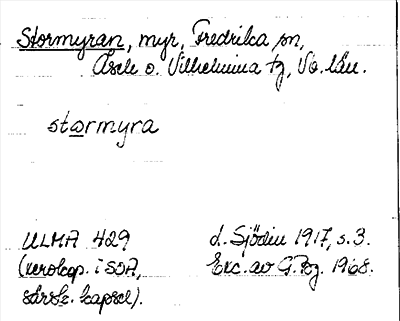 Stormyran, myr, Fredrika sn,
Åsele o. Vilhelmina tg, Vb. län.
stormyra
ULMA 429
(xerokop. i SOA,
särsk. kapsel).
d. Sjödin 1917, s. 3.
Exc. av G. Pg. 1968.